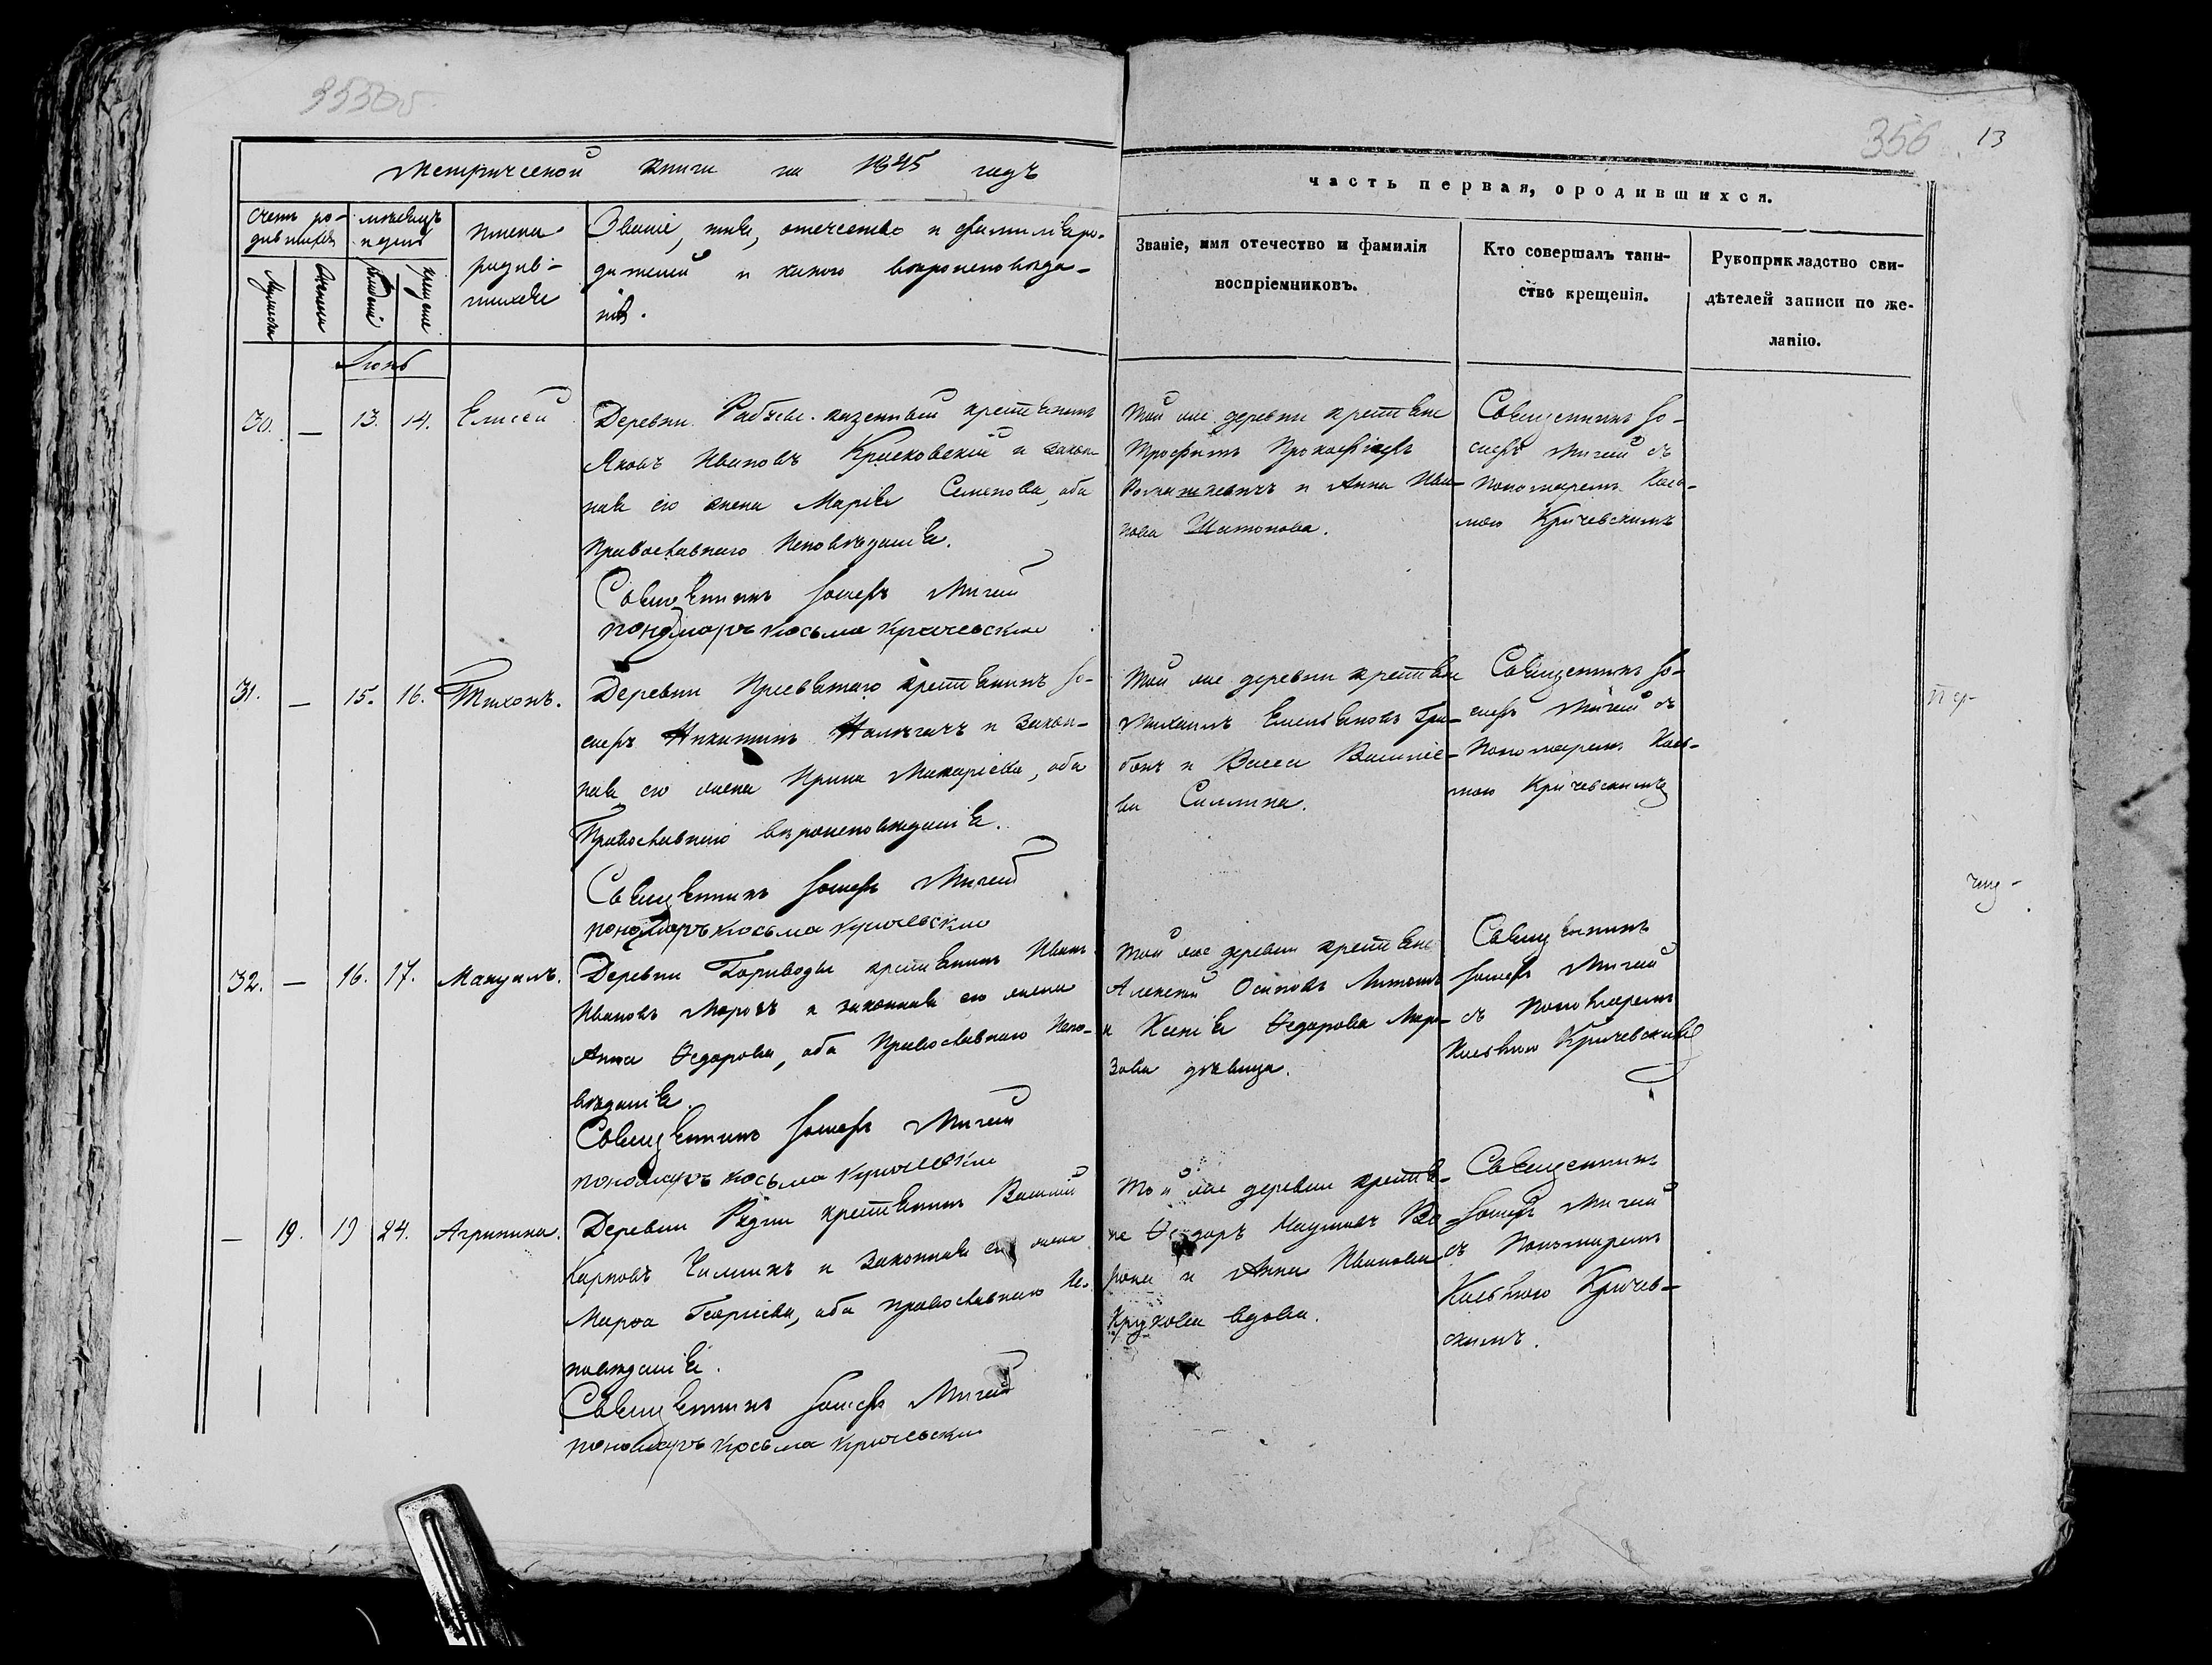 355об
356. 13
Метрической книги на 1845 годъ
часть первая, ородившихся.
Счетъ ро-
дившихся
мѣсяцъ
и день
Имена
родив-
шихся
Званіе, имя, отчество и фамилія ро-
дителей и какого вѣроисповѣда-
нія.
Мужеска
Женска
рожденія
крещенія
Званіе, имя отечество и фамилія
воспріемниковъ.
Кто совершалъ таин-
ство крещенія.
Рукоприкладство сви-
дѣтелей записи по же-
ланію.
Іюнь
30. — 13. 14. Елисей
Деревни казенный крестьянинъ
Яковъ Ивановъ и закон-
ная его жена Марія Семенова, оба
Православнаго Исповѣданія.
Священникъ Іосифъ Мигай
пономаръ косьма кричевскии
Той же деревни крестьяне
Трофимъ Прокофіевъ
и Анна Ива-
нова Шатонова.
Священникъ Іо-
сифъ Мигай съ
Пономаремъ Кось-
мою Кричевскимъ
31. — 15. 16. Тихонъ.
Деревни крестьянинъ Іо-
сифъ Никитинъ и закон-
ная его жена Ирина Макаріева, оба
Православнаго вѣроисповѣданія.
Священникъ Іосифъ Мигай
пономаръ косьма кричевскии
Той же деревни крестьяне
Михаилъ Емельяновъ Гри-
бокъ и Васса Василіе-
ва
Священникъ Іо-
сифъ Мигай съ
Пономаремъ Кось-
мою Кричевскимъ
32. — 16. 17. Мануилъ.
Деревни Гориводы крестьянинъ Иванъ
Ивановъ Морозъ и законная его жена
Анна Ѳедорова, оба Православнаго Испо-
вѣданія.
Священникъ Іосифъ Мигай
пономаръ косьма кричевскии
Той же деревни крестьяне
Алексѣй Осиповъ
и Ксенія Ѳедорова Моро-
зова дѣвица.
Священникъ
Іосифъ Мигай
съ Пономаремъ
Косьмою Кричевскимъ
— 19. 19 24. Агрипина.
Деревни Рудни крестьянинъ Василій
Карповъ и законная его жена
Марѳа Георгіева, оба православнаго Ис-
повѣданія.
Священникъ Іосифъ Мигай
пономаръ косьма кричевскии
Той же деревни крестья-
не Ѳеодоръ Наумовъ Во-
рона и Анна Иванова
Крукова вдова.
Священникъ
Іосифъ Мигай
съ Пономаремъ
Косьмою Кричев-
скимъ.